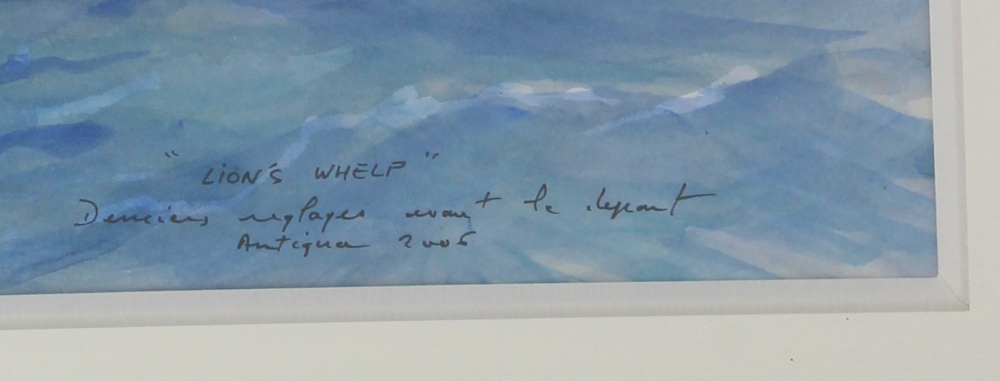 "LION'S WHELP"
Derniers reglages avant le depart
Antigua 2006